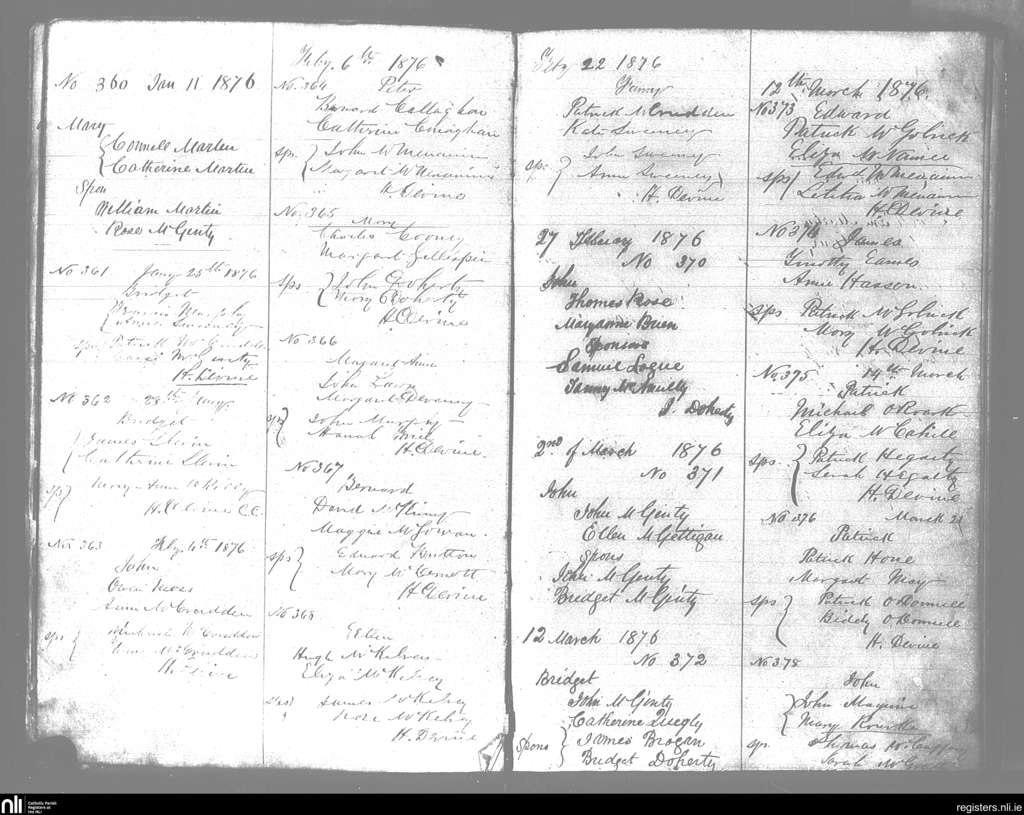 No 360 Jan 11 1876
Mary
Connell Marten
Catherine Martin
Spon
William Martin
Rose McGenty
No 361 Jany 25th 1876
Bridget
Patrick
H. Devine
No 362 28th Jany.
Bridget
James Slevin
Catherine Slevin
Mary Ann
H. Devine CC.
No 363 Feby. 4th 1876
John
Owen
McCrudden
sps
McCrudden
McCrudden
Feby. 6th 1876
No. 364 Peter
Bernard Callaghan
Catherine
sps John McMenamin
Margaret McMenamin
H. Devine
No. 365
Mary
Charles Cooney
Margaret Gillespie
sps John Doherty
Mary Doherty
H. Devine
No 366
Margaret Ann
John
Margaret Devanny
sps John Murphy
Hanah
H. Devine.
No 367
Bernard
David
Maggie McGowan.
sps Edward Britton
Mary McDermott
H Devine
No 368
Ellen
Hugh McKelvey
Eliza McKelvey
sps James McKelvey
Rose McKelvey
H. Devine
Feby 22 1876
Fanny
Patrick McCrudden
Kate Sweeney
sps John Sweeney
Annie Sweeney
H. Devine
27 February 1876
No 370
John
Thomes Rose
Maryanne Brien
Sponsors
Samuel Logue
Fanny McAnulty
J. Doherty
2nd of March 1876
No 371
John
John McGenty
Ellen McGettigan
Spons
John McGenty
Bridget McGinty
12 March 1876
No 372
Bridget
John McGenty
Catherine Quegly
Spons James Brogan
Bridget Doherty
12th March 1876.
No 373 Edward
Patrick McGolrick
Eliza McNamee
sps Edwd McMenamin
Letitia McMenamin
H. Devine
No 374 James
Timothy Eames
Annie Hasson.
sps Patrick McGolrick
Mary McGolrick
H. Devine
No 375 14th March
Patrick
Michael O'Roark
Eliza McCahill
sps Patrick Hegarty
Sarah Hegarty
H. Devine
No 376 March 21
Patrick
Patrick Hone
Margaret May
sps Patrick O'Donnell
Biddy O'Donnell
H. Devine
No 378
John
John Maguire
Mary Rourke
sps Thomas
Sarah
nli
Catholic Parish
Registers at
the NLI
registers.nli.ie